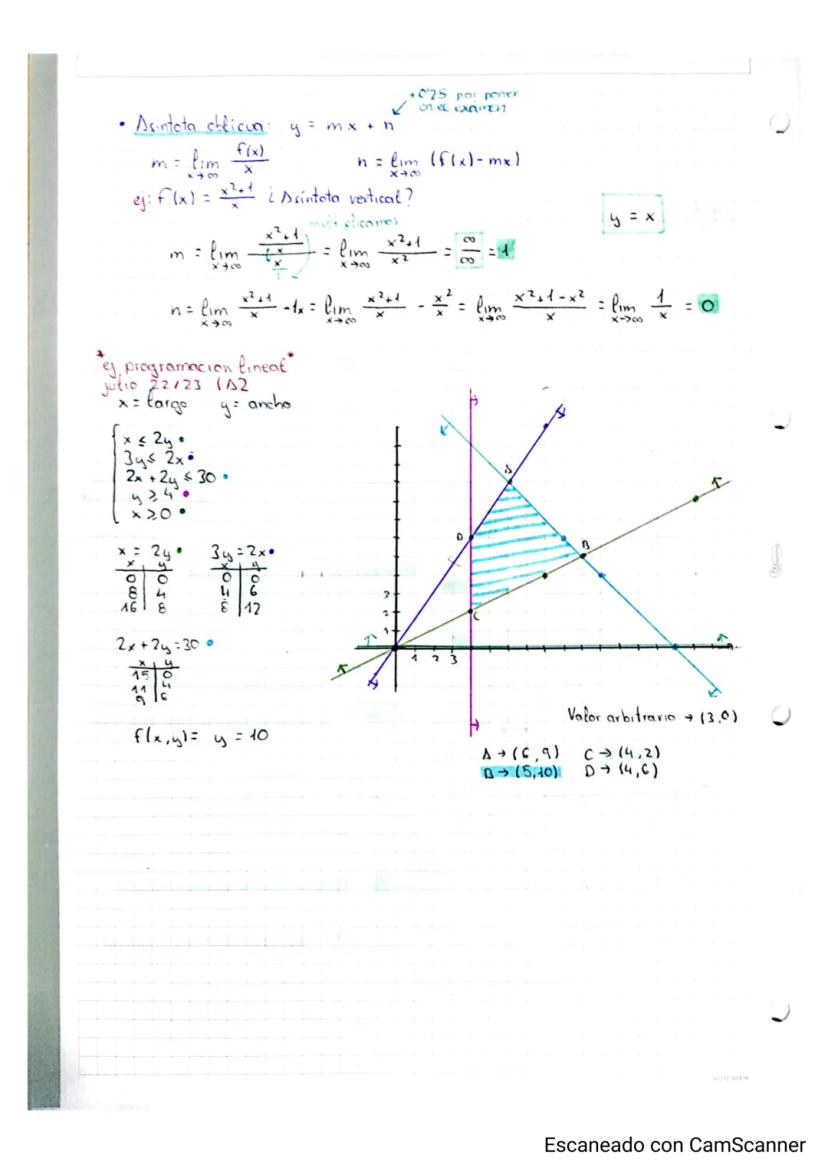 +0'25 por poner
en el exámen
• Asíntota oblicua: y = mx + n
m = lim x→∞ f(x)/x    n = lim x→∞ (f(x) - mx)
ej: f(x) = x²+1/x ¿Asíntota vertical?
y = x
multiplicamos
m = lim x→∞ (x²+1/x)/(x/1) = lim x→∞ x²+1/x² = ∞/∞ = 1
n = lim x→∞ x²+1/x - 1x = lim x→∞ x²+1/x - x²/x = lim x→∞ x²+1-x²/x = lim x→∞ 1/x = 0
*ej programacion lineal*
julio 22/23 (A2
x = largo    y = ancho
x ≤ 2y
3y ≤ 2x
2x + 2y ≤ 30
y ≥ 4
x ≥ 0
x = 2y    3y = 2x
x y    x y
0 0    0 0
8 4    4 6
16 8    8 12
2x + 2y = 30
x y
15 0
11 4
9 6
f(x,y) = y = 10
A
D
B
C
3
2
1
1 2 3
Valor arbitrario → (3,0)
A → (6,9)    C → (4,2)
B → (5,10)    D → (4,6)
Escaneado con CamScanner